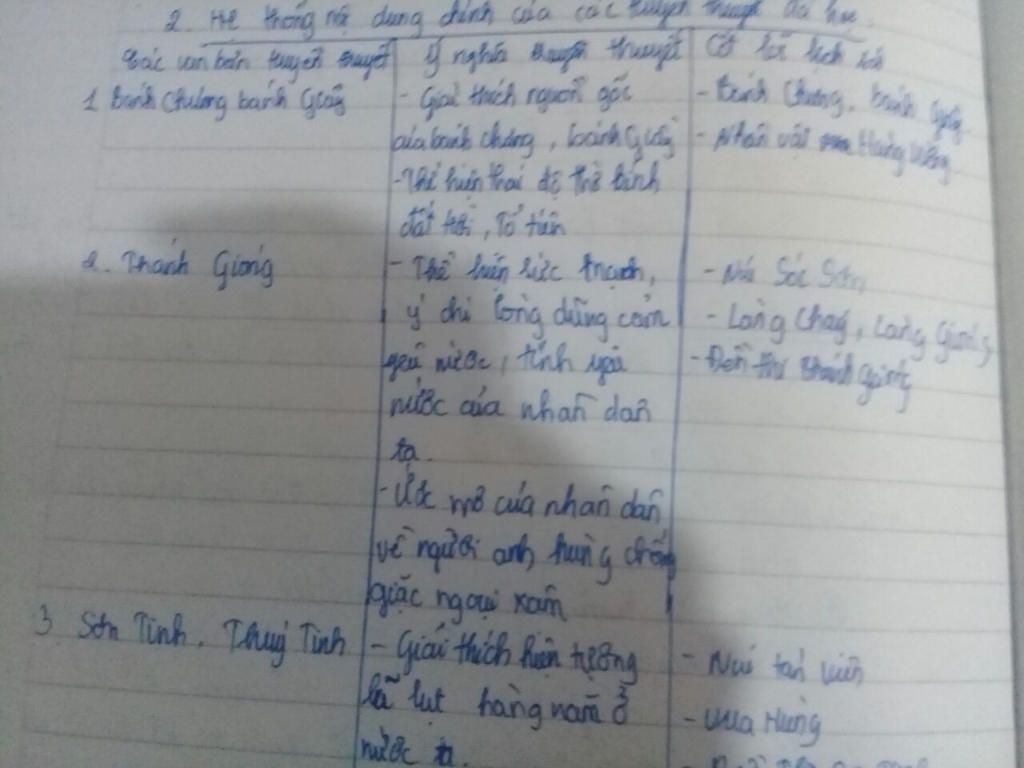 2. Hệ thống nội dung chính của các truyền thuyết đã học.
Các văn bản truyền thuyết
Ý nghĩa truyền thuyết
Cơ sở lịch sử
1 Bánh chưng bánh Giầy
- Giải thích nguồn gốc
của bánh chưng, bánh Giầy
- Thể hiện thái độ thờ kính
đất trời, Tổ tiên
- Bánh Chưng, bánh Giầy
- Nhân vật Hùng Vương
2. Thánh Gióng
- Thể hiện sức mạnh,
ý chí lòng dũng cảm
yêu nước, tình yêu
nước của nhân dân
ta.
- Ước mơ của nhân dân
về người anh hùng chống
giặc ngoại xâm
- Núi Sóc Sơn
- Làng Cháy, Làng Gióng
- Đền thờ thánh Gióng
3 Sơn Tinh, Thuỷ Tinh
- Giải thích hiện tượng
lũ lụt hàng năm ở
nước ta.
- Núi tản viên
- vua Hùng